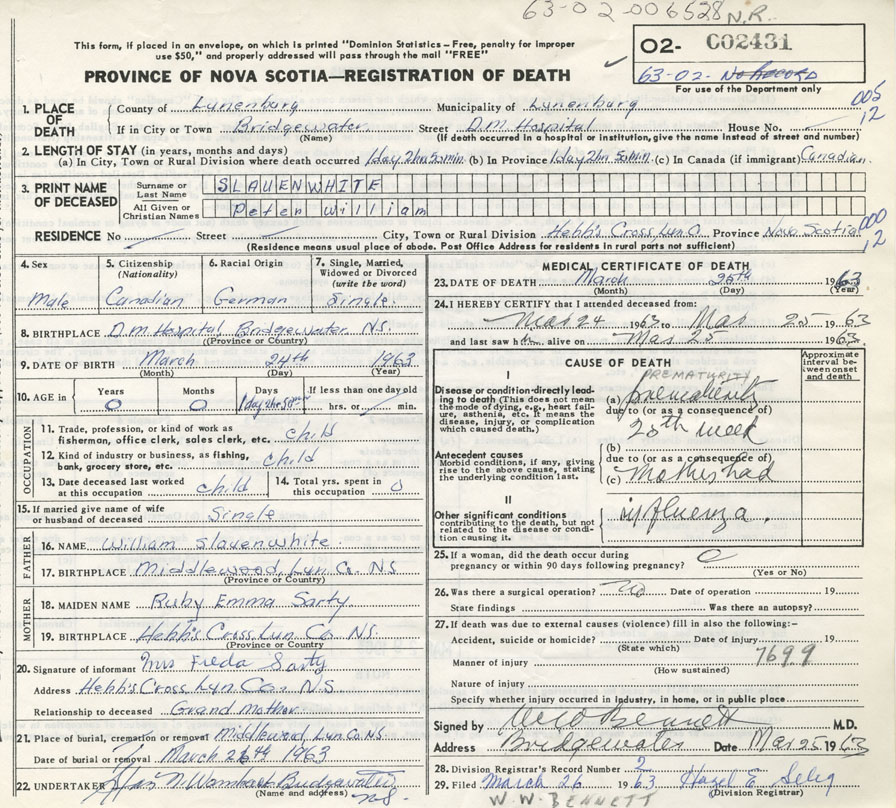 63-02-006528 N.R.
This form, if placed in an envelope, on which is printed "Dominion Statistics – Free, penalty for improper
use $50," and properly addressed will pass through the mail "FREE"
PROVINCE OF NOVA SCOTIA—REGISTRATION OF DEATH
02- C02431
63-02- No Record
For use of the Department only
005
12
1. PLACE OF DEATH
County of Lunenburg Municipality of Lunenburg
If in City or Town Bridgewater Street D.M. Hospital House No.
(Name) (If death occurred in a hospital or institution, give the name instead of street and number)
2. LENGTH OF STAY (in years, months and days)
(a) In City, Town or Rural Division where death occurred 1 day 2 hr (b) In Province 1 day 2 hr (c) In Canada (if immigrant) Canadian
3. PRINT NAME OF DECEASED
Surname or Last Name SLAUENWHITE
All Given or Christian Names Peter William
RESIDENCE No Street City, Town or Rural Division Hebb's Cross, Lun Co Province Nova Scotia
(Residence means usual place of abode. Post Office Address for residents in rural parts not sufficient)
000
12
4. Sex Male
5. Citizenship (Nationality) Canadian
6. Racial Origin German
7. Single, Married, Widowed or Divorced (write the word) Single
8. BIRTHPLACE D M Hospital Bridgewater N.S.
(Province or Country)
9. DATE OF BIRTH March 24th 1963
(Month) (Day) (Year)
10. AGE in Years 0 Months 0 Days 1 day 2 hr If less than one day old hrs. or min.
OCCUPATION
11. Trade, profession, or kind of work as fisherman, office clerk, sales clerk, etc. child
12. Kind of industry or business, as fishing, bank, grocery store, etc. child
13. Date deceased last worked at this occupation child
14. Total yrs. spent in this occupation 0
15. If married give name of wife or husband of deceased Single
FATHER
16. NAME William Slauenwhite
17. BIRTHPLACE Middlewood, Lun Co. N.S
(Province or Country)
MOTHER
18. MAIDEN NAME Ruby Emma Sarty
19. BIRTHPLACE Hebb's Cross Lun Co N.S.
(Province or Country
20. Signature of informant Mrs Freda Sarty
Address Hebb's Cross Lyn Co. N S
Relationship to deceased Grand Mother
21. Place of burial, cremation or removal Middlewood, Lun Co NS
Date of burial or removal March 26th 1963
22. UNDERTAKER Bridgewater
(Name and address) N.S.
MEDICAL CERTIFICATE OF DEATH
23. DATE OF DEATH March 25th 1963
(Month) (Day) (Year)
24. I HEREBY CERTIFY that I attended deceased from:
Mar 24 1963 to Mar 25 1963
and last saw h alive on Mar 25 1963
CAUSE OF DEATH
Approximate interval between onset and death
I
Disease or condition directly leading to death (This does not mean the mode of dying, e.g., heart failure, asthenia, etc. It means the disease, injury, or complication which caused death.)
PREMATURITY
(a) prematurity
due to (or as a consequence of)
28th week
Antecedent causes
Morbid conditions, if any, giving rise to the above cause, stating the underlying condition last.
(b)
due to (or as a consequence of)
(c) Mother had
II
Other significant conditions
contributing to the death, but not related to the disease or condition causing it.
influenza.
25. If a woman, did the death occur during pregnancy or within 90 days following pregnancy? 0
(Yes or No)
26. Was there a surgical operation? no Date of operation 19
State findings Was there an autopsy?
27. If death was due to external causes (violence) fill in also the following:–
Accident, suicide or homicide? Date of injury 19
(State which)
7699
Manner of injury
(How sustained)
Nature of injury
Specify whether injury occurred in industry, in home, or in public place
Signed by W W Bennett M.D.
Address Bridgewater Date Mar 25 1963
28. Division Registrar's Record Number
29. Filed March 26 1963 Hazel E. Selig
(Division Registrar)
W. W. BENNETT